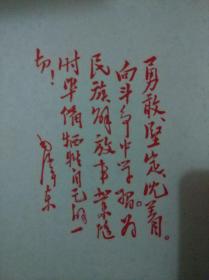 勇敢、坚定、沉着。
向斗争中学习。为
民族解放事业随
时准备牺牲自己的一
切！
毛泽东